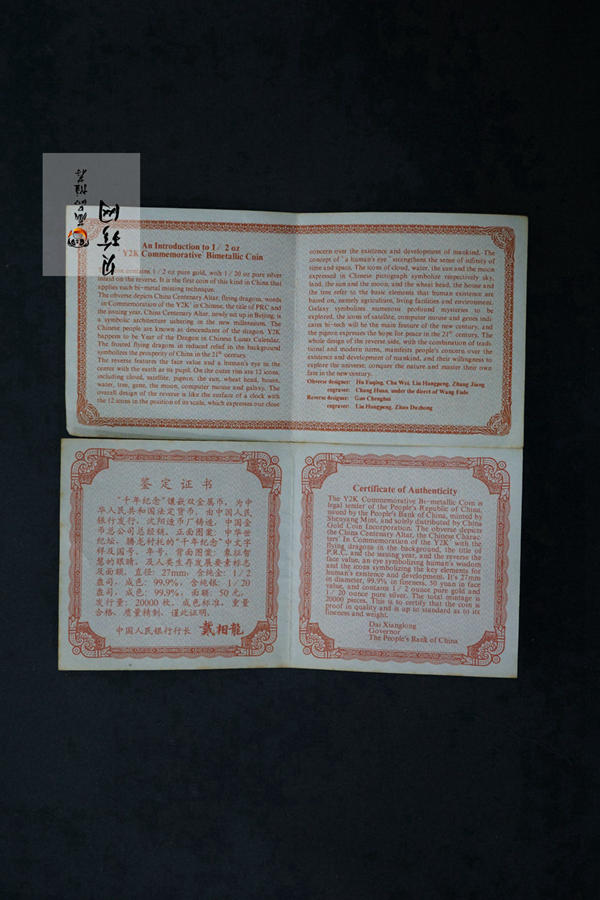 贝珍网
An Introduction to 1/2 oz
Y2K Commemorative Bimetallic Coin
coin contains 1/2 oz pure gold, with 1/20 oz pure silver
inlaid on the reverse. It is the first coin of this kind in China that
applies such bi-metal missing technique.
The obverse depicts China Centenary Altar, flying dragons, words
'in Commemoration of the Y2K' in Chinese, the title of PRC and
the issuing year. China Centenary Altar, newly set up in Beijing, is
a symbolic architecture ushering in the new millennium. The
Chinese people are known as descendants of the dragon. Y2K
happens to be Year of the Dragon in Chinese Lunar Calendar.
The found flying dragons in reduced relief in the background
symbolizes the prosperity of China in the 21st century.
The reverse features the face value and a human's eye in the
center with the earth as its pupil. On the outer rim are 12 icons,
including cloud, satellite, pigeon, the sun, wheat head, house,
water, tree, gene, the moon, computer mouse and galaxy. The
overall design of the reverse is like the surface of a clock with
the 12 icons in the position of its scale, which expresses our close
concern over the existence and development of mankind. The
concept of "a human's eye" strengthens the sense of infinity of
time and space. The icons of cloud, water, the sun and the moon
expressed in Chinese pictograph symbolize respectively sky,
land, the sun and the moon; and the wheat head, the house and
the tree refer to the basic elements that human existence are
based on, namely agriculture, living facilities and environment.
Galaxy symbolizes numerous profound mysteries to be
explored, the icons of satellite, computer mouse and genes indi-
cates hi-tech will be the main feature of the new century, and
the pigeon expresses the hope for peace in the 21st century. The
whole design of the reverse side, with the combination of tradi-
tional and modern items, manifests people's concern over the
existence and development of mankind, and their willingness to
explore the universe, conquer the nature and master their own
fate in the new century.
Obverse designer: Hu Fuqing, Chu Wei, Liu Hangpeng, Zhang Jiang
engraver: Chang Huan, under the direct of Wang Fude
Reverse designer: Guo Chenghui
engraver: Liu Hongpeng, Zhou Dezhong
鉴定证书
“千年纪念”镶嵌双金属币,为中
华人民共和国法定货币,由中国人民
银行发行,沈阳造币厂铸造,中国金
币总公司总经销。正面图案:中华世
纪坛、腾龙衬托的“千年纪念”中文字
样及国号、年号,背面图案:象征智
慧的眼睛,及人类生存发展要素标志
及面额。直径:27mm,含纯金:1/2
盎司,成色:99.9%,含纯银:1/20
盎司,成色:99.9%,面额:50元,
发行量:20000枚。成色标准,重量
合格,质量精制,谨此证明。
中国人民银行行长 戴相龍
Certificate of Authenticity
The Y2K Commemorative Bi-metallic Coin is
legal tender of the People's Republic of China,
issued by the People's Bank of China, minted by
Shenyang Mint, and solely distributed by China
Gold Coin Incorporation. The obverse depicts
the China Centenary Altar, the Chinese Charac-
ters' In Commemoration of the Y2K' with the
flying dragons in the background, the title of
P.R.C. and the issuing year, and the reverse the
face value, an eye symbolizing human's wisdom
and the icons symbolizing the key elements for
human's existence and development. It's 27mm
in diameter, 99.9% in fineness, 50 yuan in face
value, and contains 1/2 ounce pure gold and
1/20 ounce pure silver. The total mintage is
20000 pieces. This is to certify that the coin is
proof in quality and is up to standard as to its
fineness and weight.
Dai Xianglong
Governor
The People's Bank of China